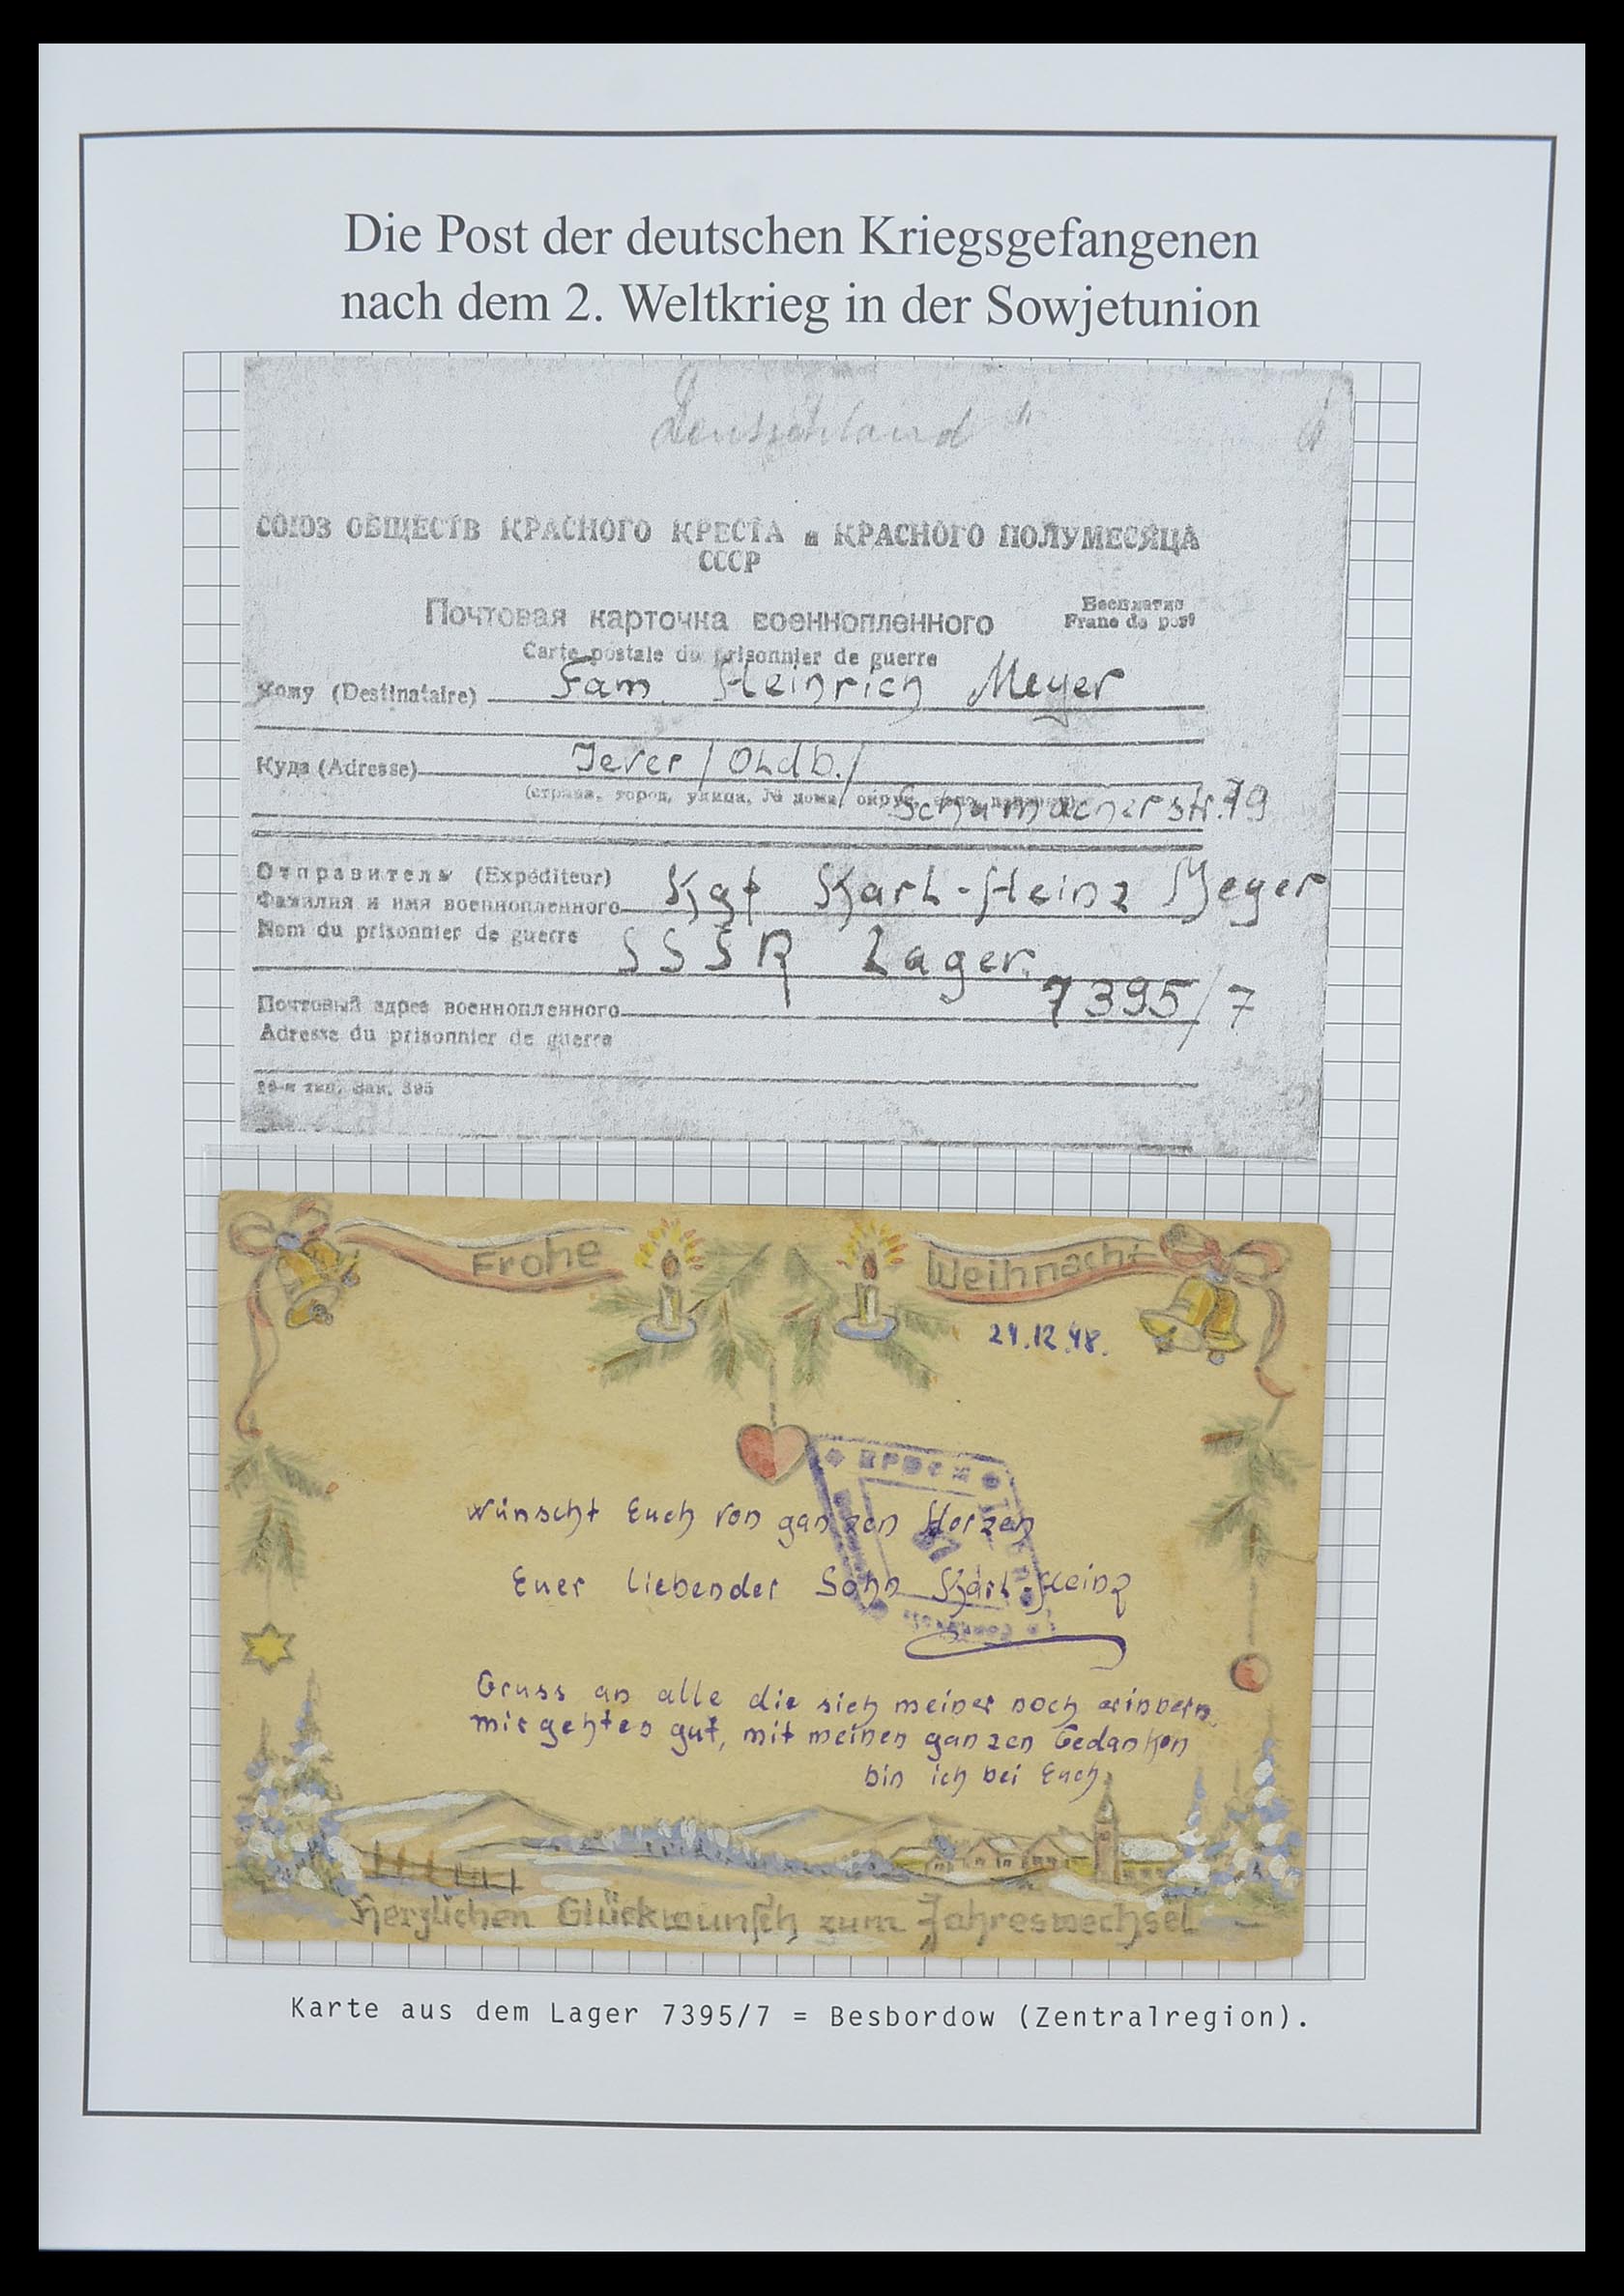 Die Post der deutschen Kriegsgefangenen
nach dem 2. Weltkrieg in der Sowjetunion
Deutschland
СОЮЗ ОБЩЕСТВ КРАСНОГО КРЕСТА и КРАСНОГО ПОЛУМЕСЯЦА
СССР
Почтовая карточка военнопленного
Бесплатно
Franc de port
Carte postale du prisonnier de guerre
Кому (Destinataire) Fam. Heinrich Meyer
Куда (Adresse) Jever / Oldb. /
(страна, город, улица, № дома, округ,
Schumacherstr. 79
Отправитель (Expéditeur)
Фамилия и имя военнопленного Kgf Karl-Heinz Meyer
Nom du prisonnier de guerre
SSSR Lager
7395/7
Почтовый адрес военнопленного
Adresse du prisonnier de guerre
тип. Зак. 395
Frohe Weihnacht
24.12.48.
wünscht Euch von ganzen Herzen
Euer liebender Sohn Karl-Heinz
Gruss an alle die sich meiner noch erinnern,
mir gehtes gut, mit meinen ganzen Gedanken
bin ich bei Euch
Herzlichen Glückwunsch zum Jahreswechsel
Karte aus dem Lager 7395/7 = Besbordow (Zentralregion).